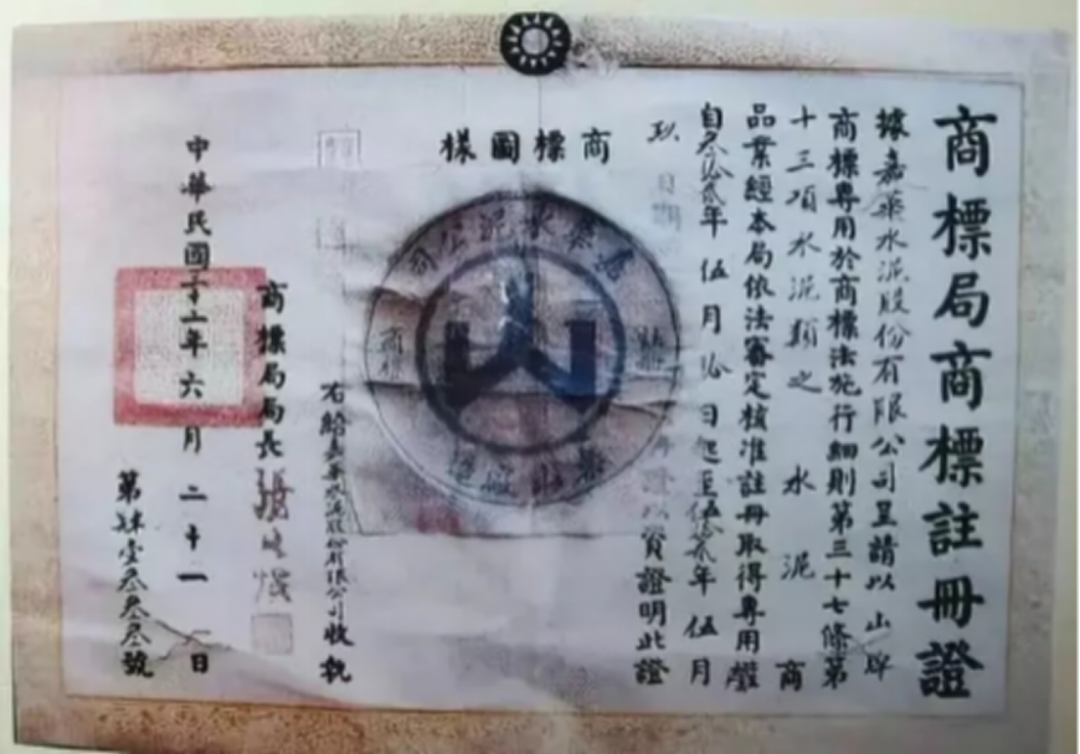 商標局商標註冊證
據嘉華水泥股份有限公司呈請以山牌
商標專用於商標法施行細則第三十七條第
十三項水泥類之 水泥 商
品業經本局依法審定核准註冊取得專用權
自叁拾貳年伍月拾日起至伍拾貳年伍月
玖
資證明此證
商標圖樣
嘉華水泥公司
商標
右給嘉華水泥股份有限公司收執
商標局局長
中華民國三十二年六月二十一日
第肆壹叁叁叁號